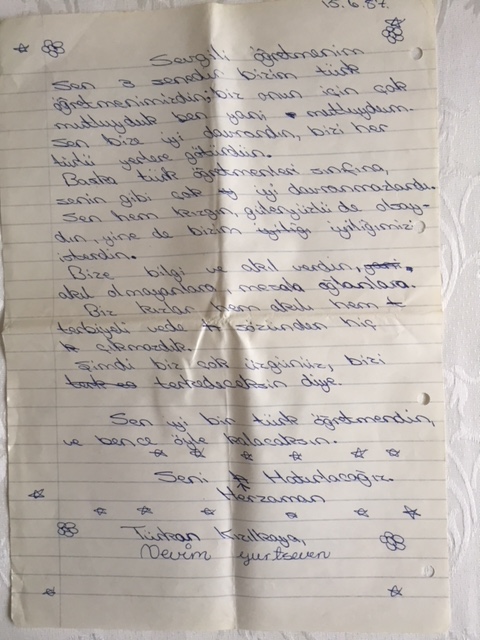 15.6.87.
Sevgili öğretmenim
Sen 3 senedir bizim türk
öğretmenimizdin, biz onun için çok
mutluyduk ben yani mutluydum.
Sen bize iyi davrandın, bizi her
türlü yerlere götürdün.
Başka türk öğretmenleri sınfına,
senin gibi çok iyi davranmazlardı.
Sen hem kızgın, gülenyüzlü de olsay-
dın, yine de bizim iyiliğimizi
isterdin.
Bize bilgi ve akıl verdin,
akıl olmayanlara, mesela oğlanlara.
Biz kızlar hem akıllı hem
terbiyeli vede sözünden hiç
çıkmazdık.
Şimdi biz çok üzgünüz, bizi
terkedeceksin diye.
Sen iyi bir türk öğretmendin,
ve bence öyle kalacaksın.
Seni Hatırlacağız.
Herzaman
Türkan Kızılkaya,
Nevim yurtseven